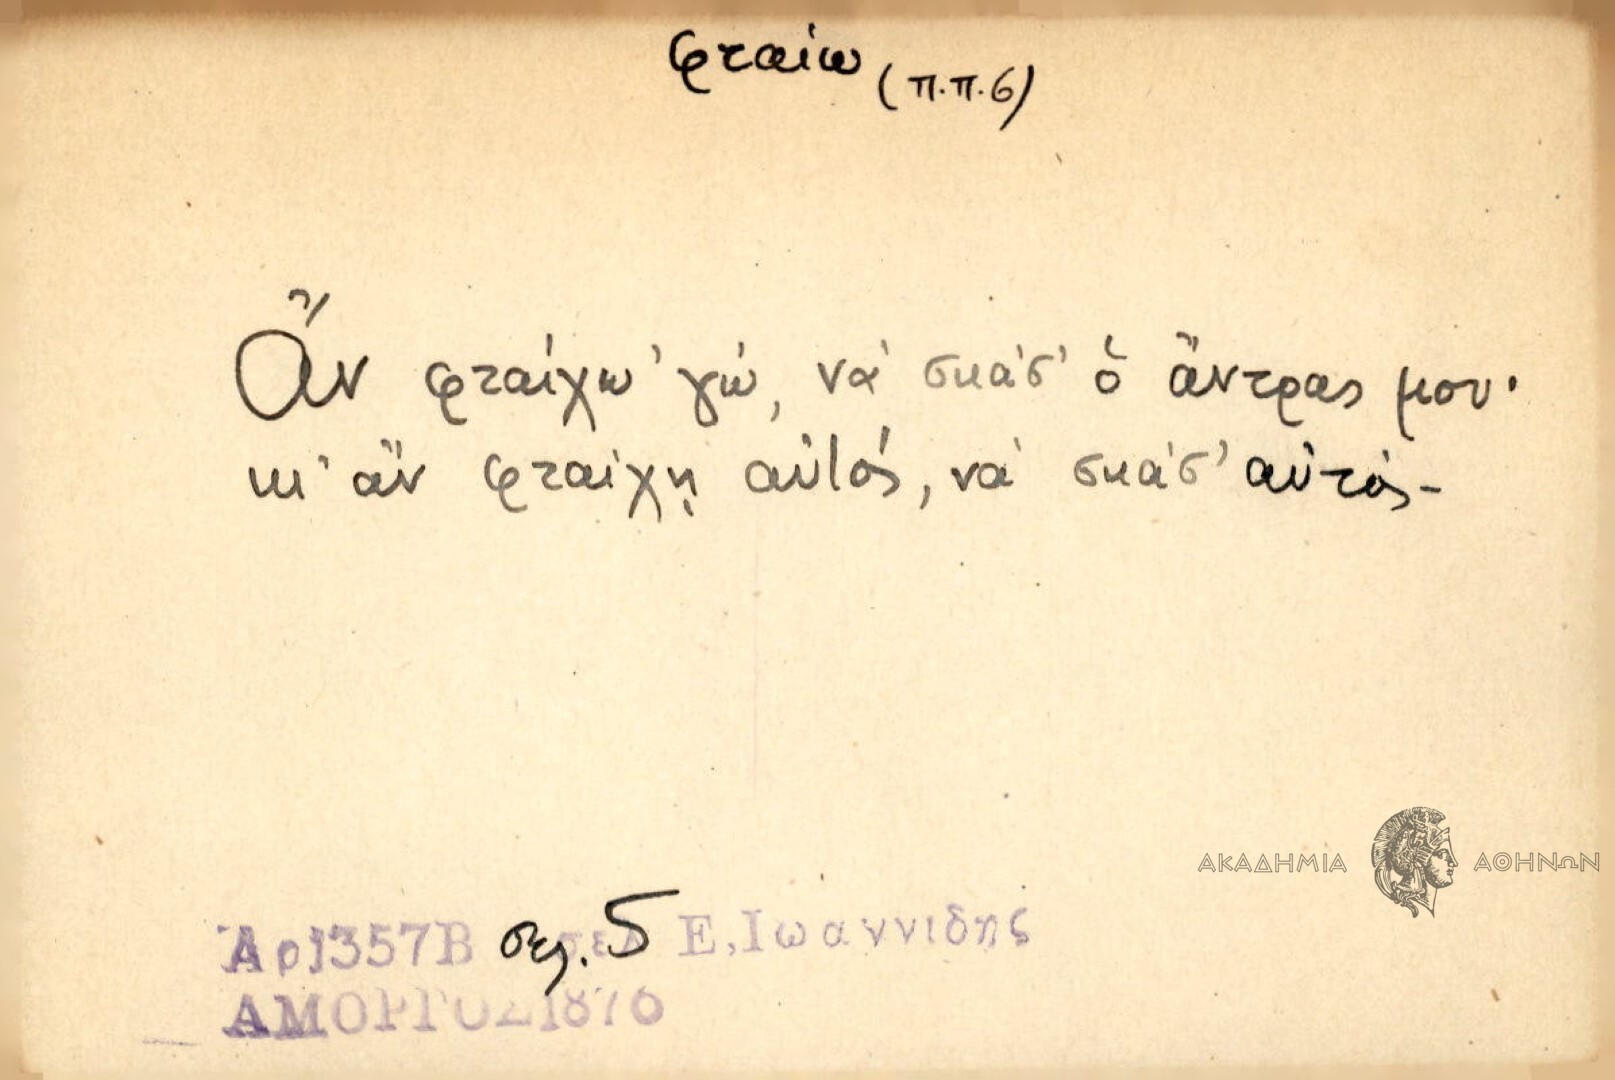 φταίω (π.π.6)
Ἂν φταίχω 'γώ, νά σκάσ' ὁ ἄντρας μου·
κι' ἄν φταίχῃ αὐτός, νά σκάσ' αὐτός-
ΑΚΑΔΗΜΙΑ ΑΘΗΝΩΝ
Ἀρ1357Β σελ. 5 Ε,Ιωαννιδης
ΑΜΟΡΓΟΣ1876